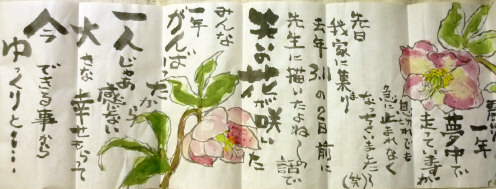 一年
夢中で
走ってますが
息ぎれでも
急に止まれなく
なっちゃいました(笑)
先日
我家に集まり
去年3.11の2日前に
先生に描いたよねーの話で
笑いの花が咲いた
みんな
一年
がんばったから
一人じゃあ
感じない
大きな幸せもらって
今できる事(から)
ゆっくりと・・・・